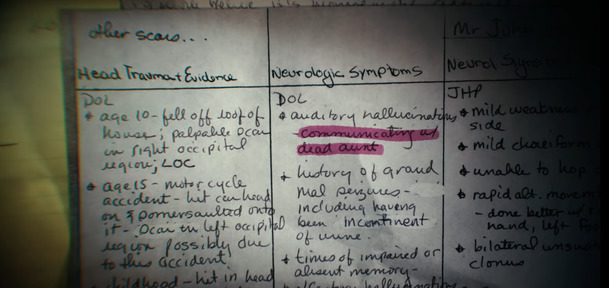 other scars...
Mr
Head Trauma+Evidence
Neurologic Symptoms
Neurol
DOL
age 10-fell off roof of
house; palpable scar
in right occipital
region; LOC
age 15 - motorcycle
accident - hit car head
on & somersaulted onto
it - scar in left occipital
region possibly due
to this accident.
childhood - hit in head
DOL
auditory hallucinations
- communicating w/
dead aunt
history of grand
mal seizures -
including having
been incontinent
of urine.
times of impaired or
absent memory -
JHP
mild weakness
side
mild choreiform
unable to hop
rapid alt. movem
- done better w/
hand, left
bilateral unsust
clonus